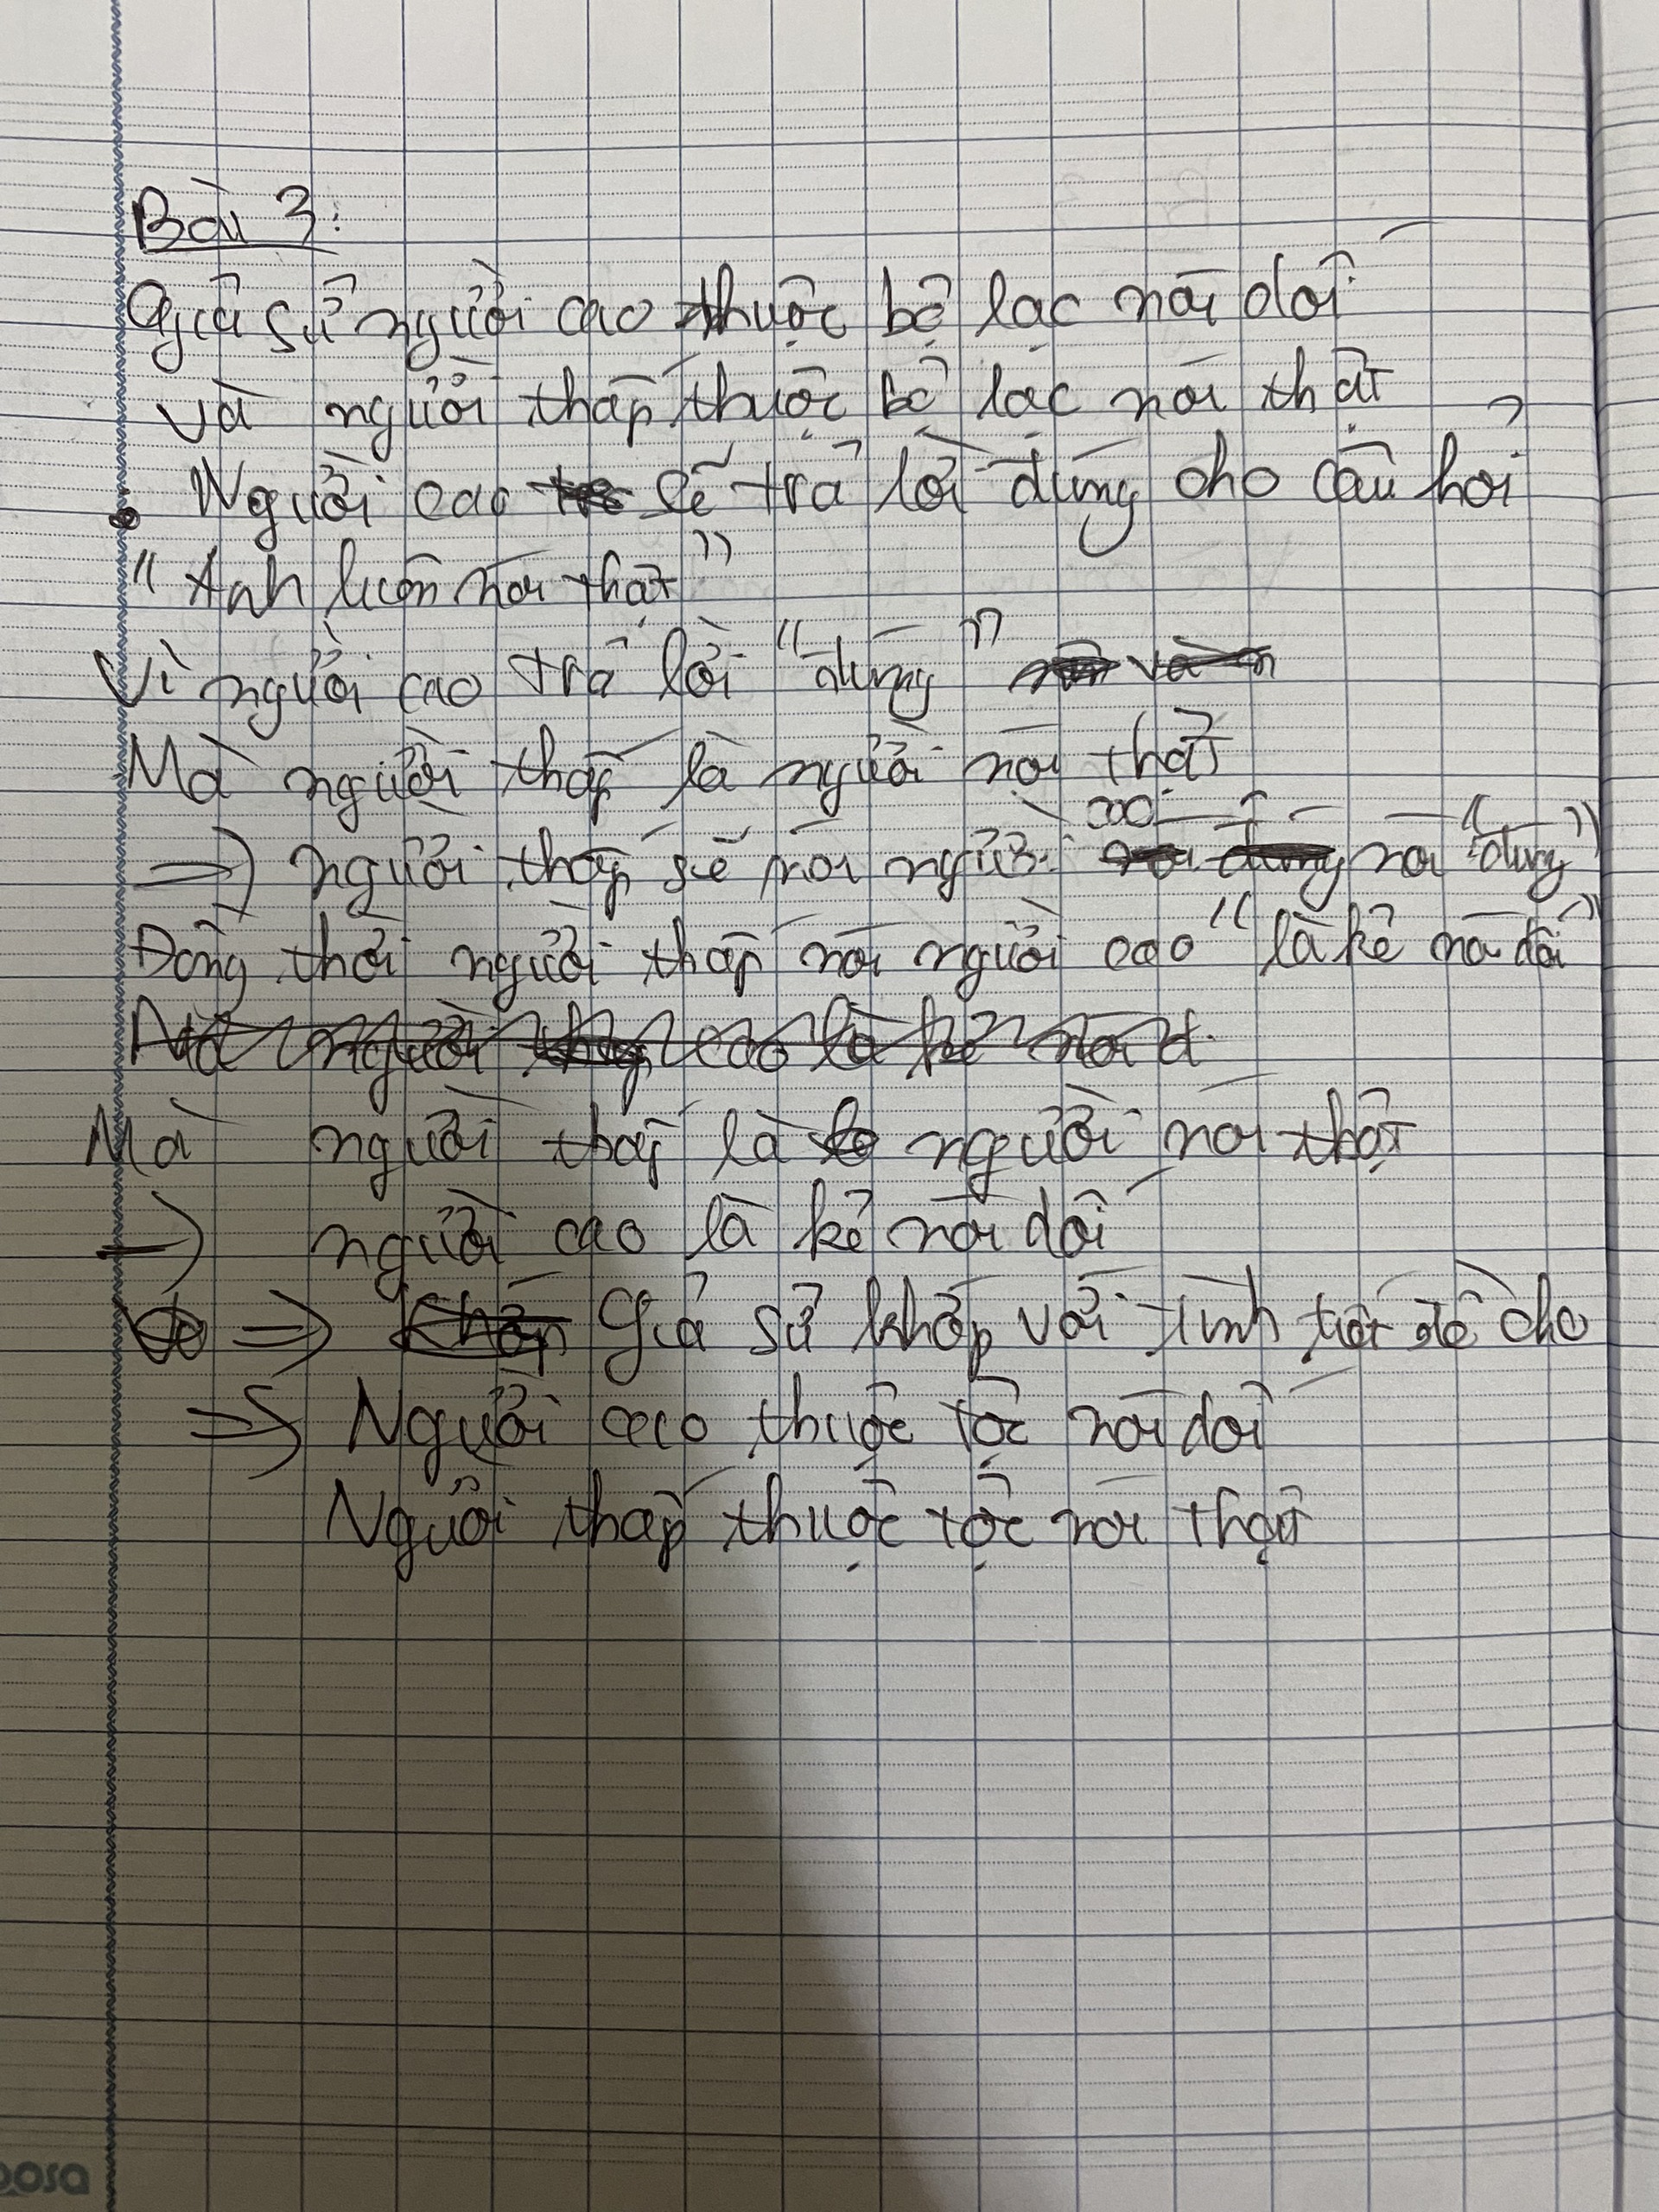 Bài 3:
Giả sử người cao thuộc bộ lạc nói dối
và người thấp thuộc bộ lạc nói thật
Người cao sẽ trả lời đúng cho câu hỏi
"Anh luôn nói thật"
Vì người cao trả lời "đúng"
Mà người thấp là người nói thật
=> người thấp sẽ nói người cao nói "đúng"
Đồng thời người thấp nói người cao "là kẻ nói dối"
Mà người cao là kẻ nói d
Mà người thấp là người nói thật
→ người cao là kẻ nói dối
=> Giả sử khớp với tình tiết đề cho
=> Người cao thuộc tộc nói dối
Người thấp thuộc tộc nói thật